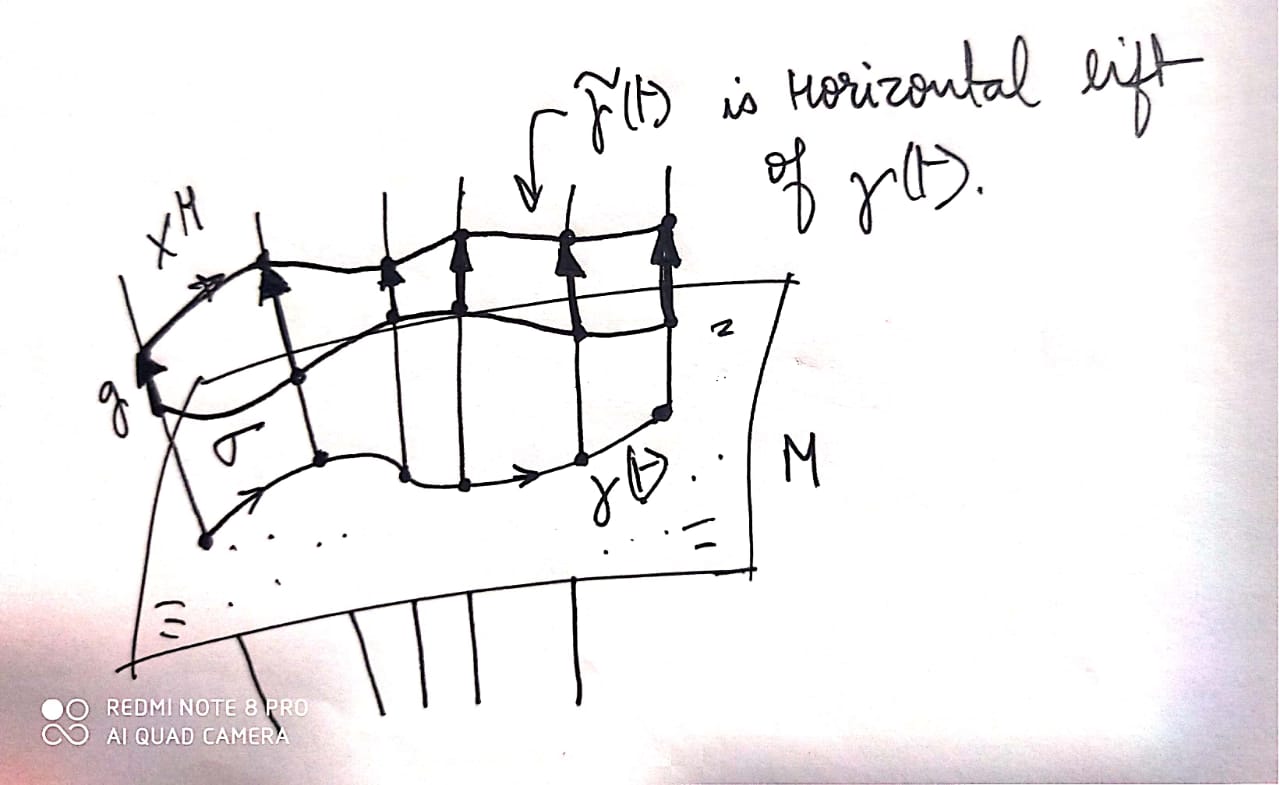 γ̃(t) is Horizontal lift
of γ(t).
X^H
g
σ
γ(t)
M
REDMI NOTE 8 PRO
AI QUAD CAMERA